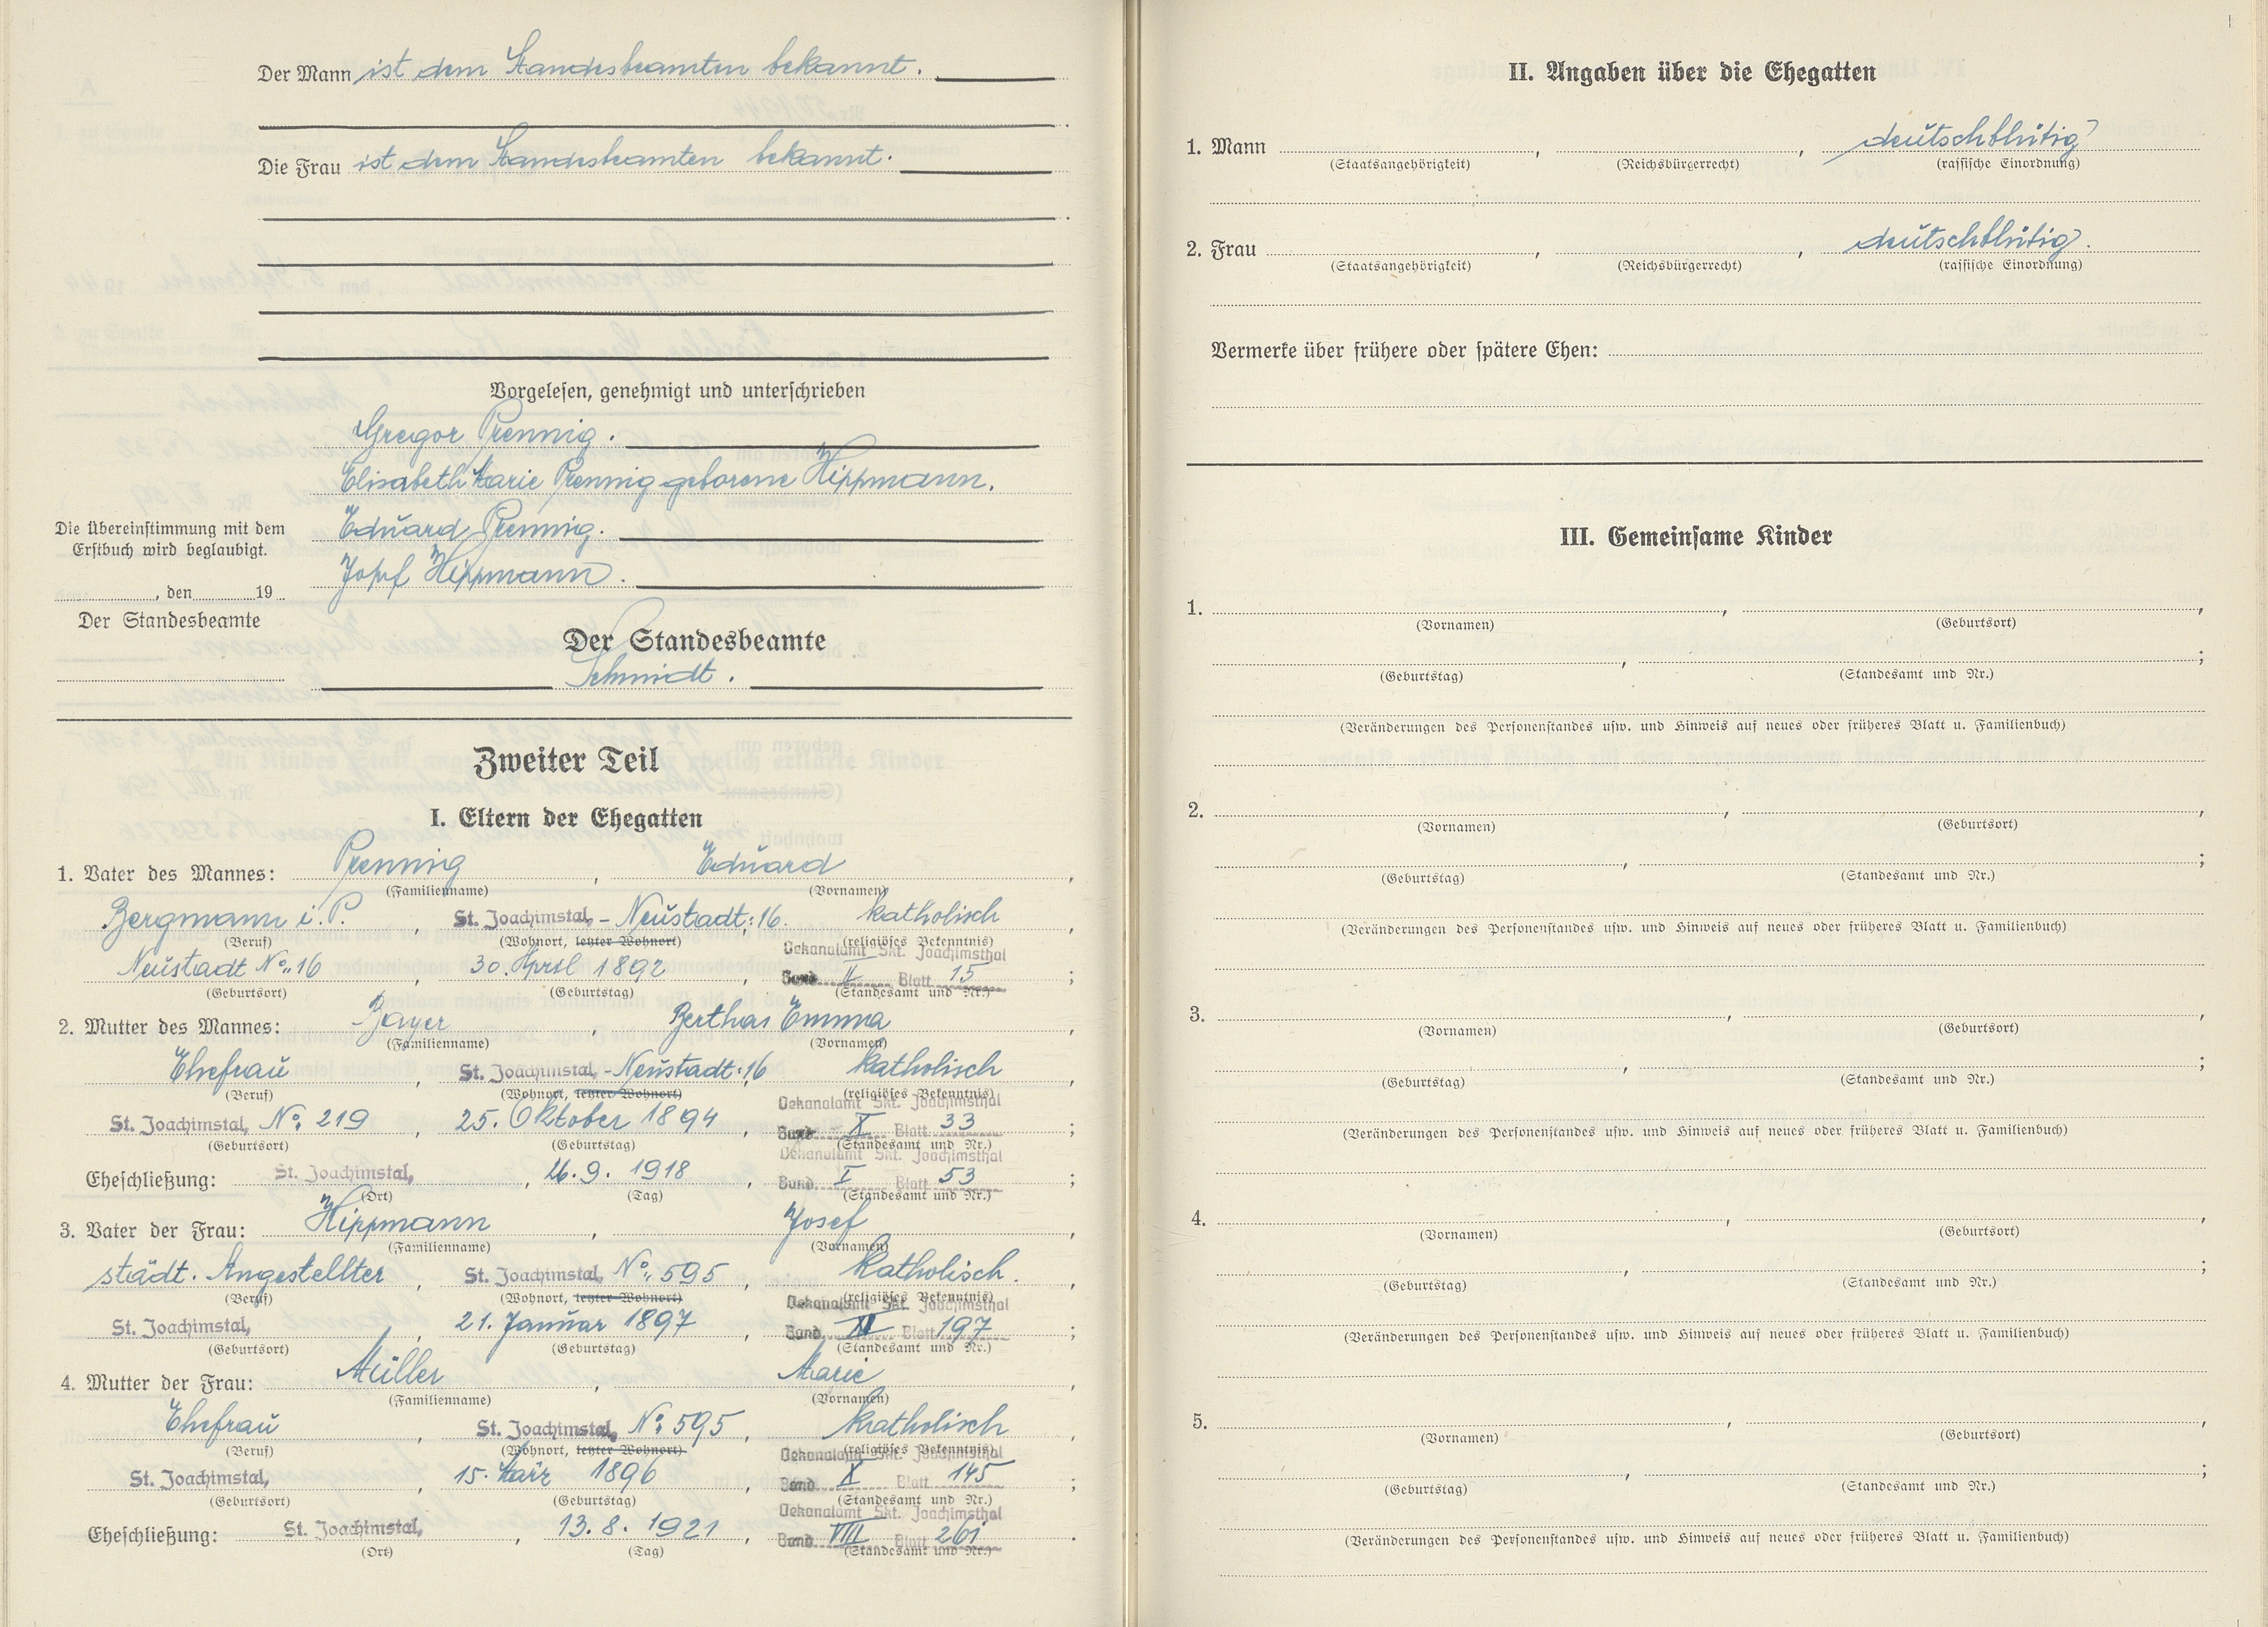 Der Mann ist dem Standesbeamten bekannt.
Die Frau ist dem Standesbeamten bekannt.
Vorgelesen, genehmigt und unterschrieben
Gregor Prennig.
Elisabeth Marie Prennig geborene Hippmann.
Eduard Prennig.
Josef Hippmann.
Die Übereinstimmung mit dem
Erstbuch wird beglaubigt.
, den 19
Der Standesbeamte
Der Standesbeamte
Schmidt.
Zweiter Teil
I. Eltern der Ehegatten
1. Vater des Mannes: Prennig, Eduard,
(Familienname) (Vornamen)
Bergmann i. P., St. Joachimstal, - Neustadt: 16. katholisch,
(Beruf) (Wohnort, letzter Wohnort) (religiöses Bekenntnis)
Dekanalamt Skt. Joachimsthal
Neustadt No. 16, 30. April 1892, Band II Blatt 15;
(Geburtsort) (Geburtstag) (Standesamt und Nr.)
2. Mutter des Mannes: Bayer, Bertha Emma,
(Familienname) (Vornamen)
Ehefrau, St. Joachimstal, - Neustadt: 16, katholisch,
(Beruf) (Wohnort, letzter Wohnort) (religiöses Bekenntnis)
Dekanalamt Skt. Joachimsthal
St. Joachimstal, No. 219, 25. Oktober 1894, Band X Blatt 33;
(Geburtsort) (Geburtstag) (Standesamt und Nr.)
Dekanalamt Skt. Joachimsthal
Eheschließung: St. Joachimstal, , 26. 9. 1918, Band I Blatt 53;
(Ort) (Tag) (Standesamt und Nr.)
3. Vater der Frau: Hippmann, Josef,
(Familienname) (Vornamen)
städt. Angestellter, St. Joachimstal, No. 595, katholisch.,
(Beruf) (Wohnort, letzter Wohnort) (religiöses Bekenntnis)
Dekanalamt Skt. Joachimsthal
St. Joachimstal, , 21. Januar 1897, Band Blatt 197;
(Geburtsort) (Geburtstag) (Standesamt und Nr.)
4. Mutter der Frau: Müller, Marie,
(Familienname) (Vornamen)
Ehefrau, St. Joachimstal, No. 595, katholisch,
(Beruf) (Wohnort, letzter Wohnort) (religiöses Bekenntnis)
Dekanalamt Skt. Joachimsthal
St. Joachimstal, , 15. März 1896, Band X Blatt 145;
(Geburtsort) (Geburtstag) (Standesamt und Nr.)
Dekanalamt Skt. Joachimsthal
Eheschließung: St. Joachimstal, , 13. 8. 1921, Band VIII Blatt 261.
(Ort) (Tag) (Standesamt und Nr.)
II. Angaben über die Ehegatten
1. Mann , , deutschblütig
(Staatsangehörigkeit) (Reichsbürgerrecht) (rassische Einordnung)
2. Frau , , deutschblütig.
(Staatsangehörigkeit) (Reichsbürgerrecht) (rassische Einordnung)
Vermerke über frühere oder spätere Ehen:
III. Gemeinsame Kinder
1. , ,
(Vornamen) (Geburtsort)
, ;
(Geburtstag) (Standesamt und Nr.)
(Veränderungen des Personenstandes usw. und Hinweis auf neues oder früheres Blatt u. Familienbuch)
2. , ,
(Vornamen) (Geburtsort)
, ;
(Geburtstag) (Standesamt und Nr.)
(Veränderungen des Personenstandes usw. und Hinweis auf neues oder früheres Blatt u. Familienbuch)
3. , ,
(Vornamen) (Geburtsort)
, ;
(Geburtstag) (Standesamt und Nr.)
(Veränderungen des Personenstandes usw. und Hinweis auf neues oder früheres Blatt u. Familienbuch)
4. , ,
(Vornamen) (Geburtsort)
, ;
(Geburtstag) (Standesamt und Nr.)
(Veränderungen des Personenstandes usw. und Hinweis auf neues oder früheres Blatt u. Familienbuch)
5. , ,
(Vornamen) (Geburtsort)
, ;
(Geburtstag) (Standesamt und Nr.)
(Veränderungen des Personenstandes usw. und Hinweis auf neues oder früheres Blatt u. Familienbuch)